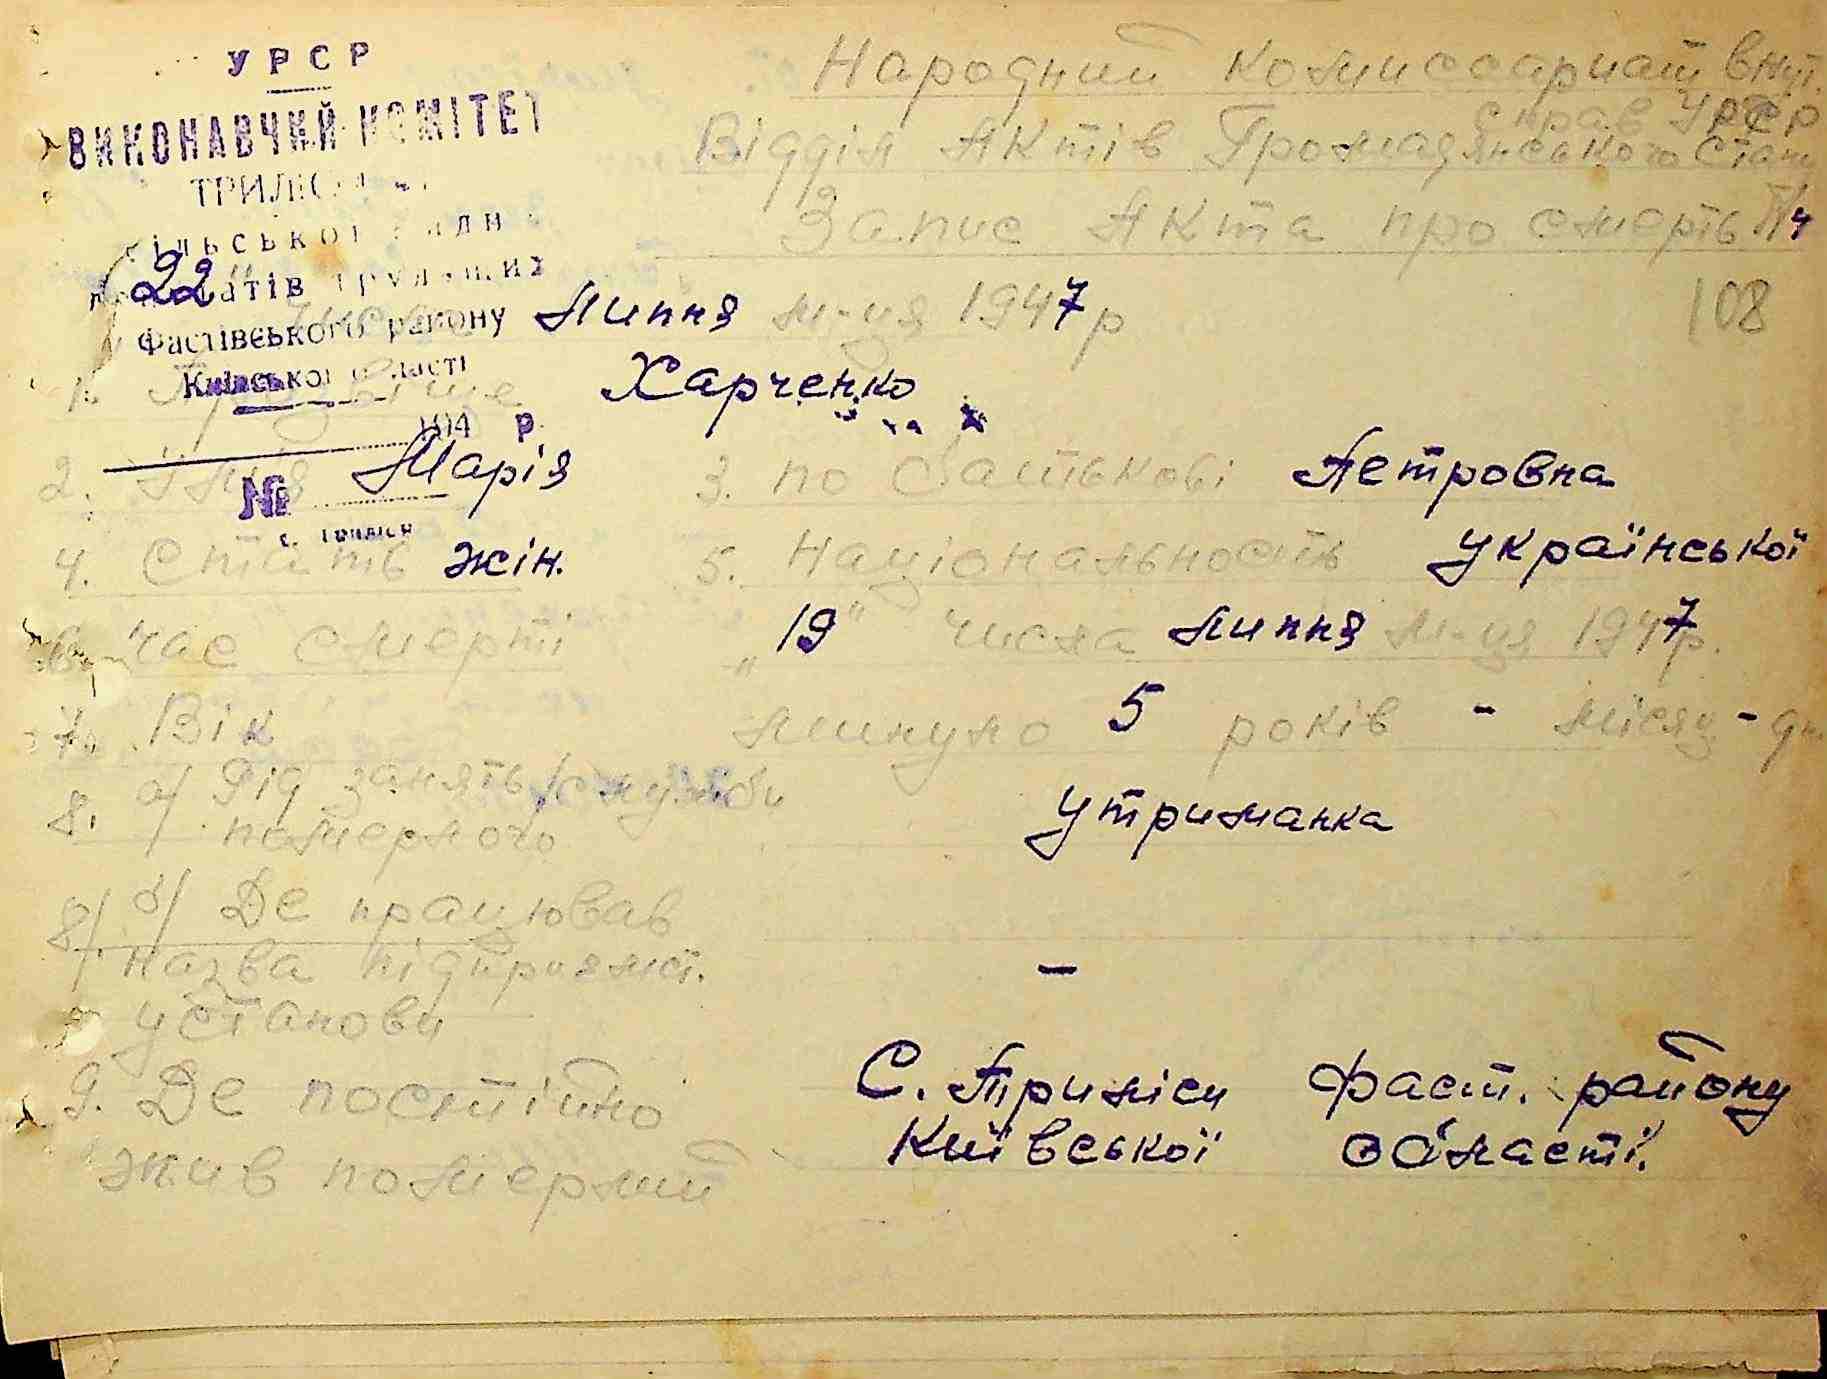 УРСР
ВИКОНАВЧИЙ КОМІТЕТ
Фастівського району
Київської області
194 р.
№
Народний комиссариат внут.
справ УРСР
Відділ Актів Громадянського Стану
Запис Акта про смерть №4
108
"22" липня м-ця 1947 р
1. Прізвіще Харченко
2. Ім'я Марія 3. по батькові Петровна
4. Стать жін. 5. Національность української
6. час смерті "19" числа липня м-ця 1947 р.
7. Вік минуло 5 років - місяц - дн.
8. а/ Рід занять/служби
померлого утриманка
8/ б/ Де працював
назва підприємст. -
установи
9. Де постійно С. Триліси Фаст. району
жив померлий Київської області.